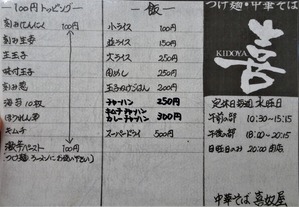 ―100円トッピング―
刻みにんにく 100円
刻み生姜
生玉子
味付玉子
刻み葱
海苔10枚
ほうれん草
キムチ
激辛ペースト 100円
―飯―
小ライス 100円
並ライス 150円
大ライス 250円
肉めし 250円
玉子かけごはん 200円
チャーハン 250円
キムチチャーハン
カレーチャーハン 300円
スーパードライ 500円
つけ麺・中華そば
KIDOYA
喜
定休日毎週水曜日
午前の部 10:30~15:15
午後の部 18:00~20:15
日曜日のみ 20:00閉店
中華そば 喜奴屋